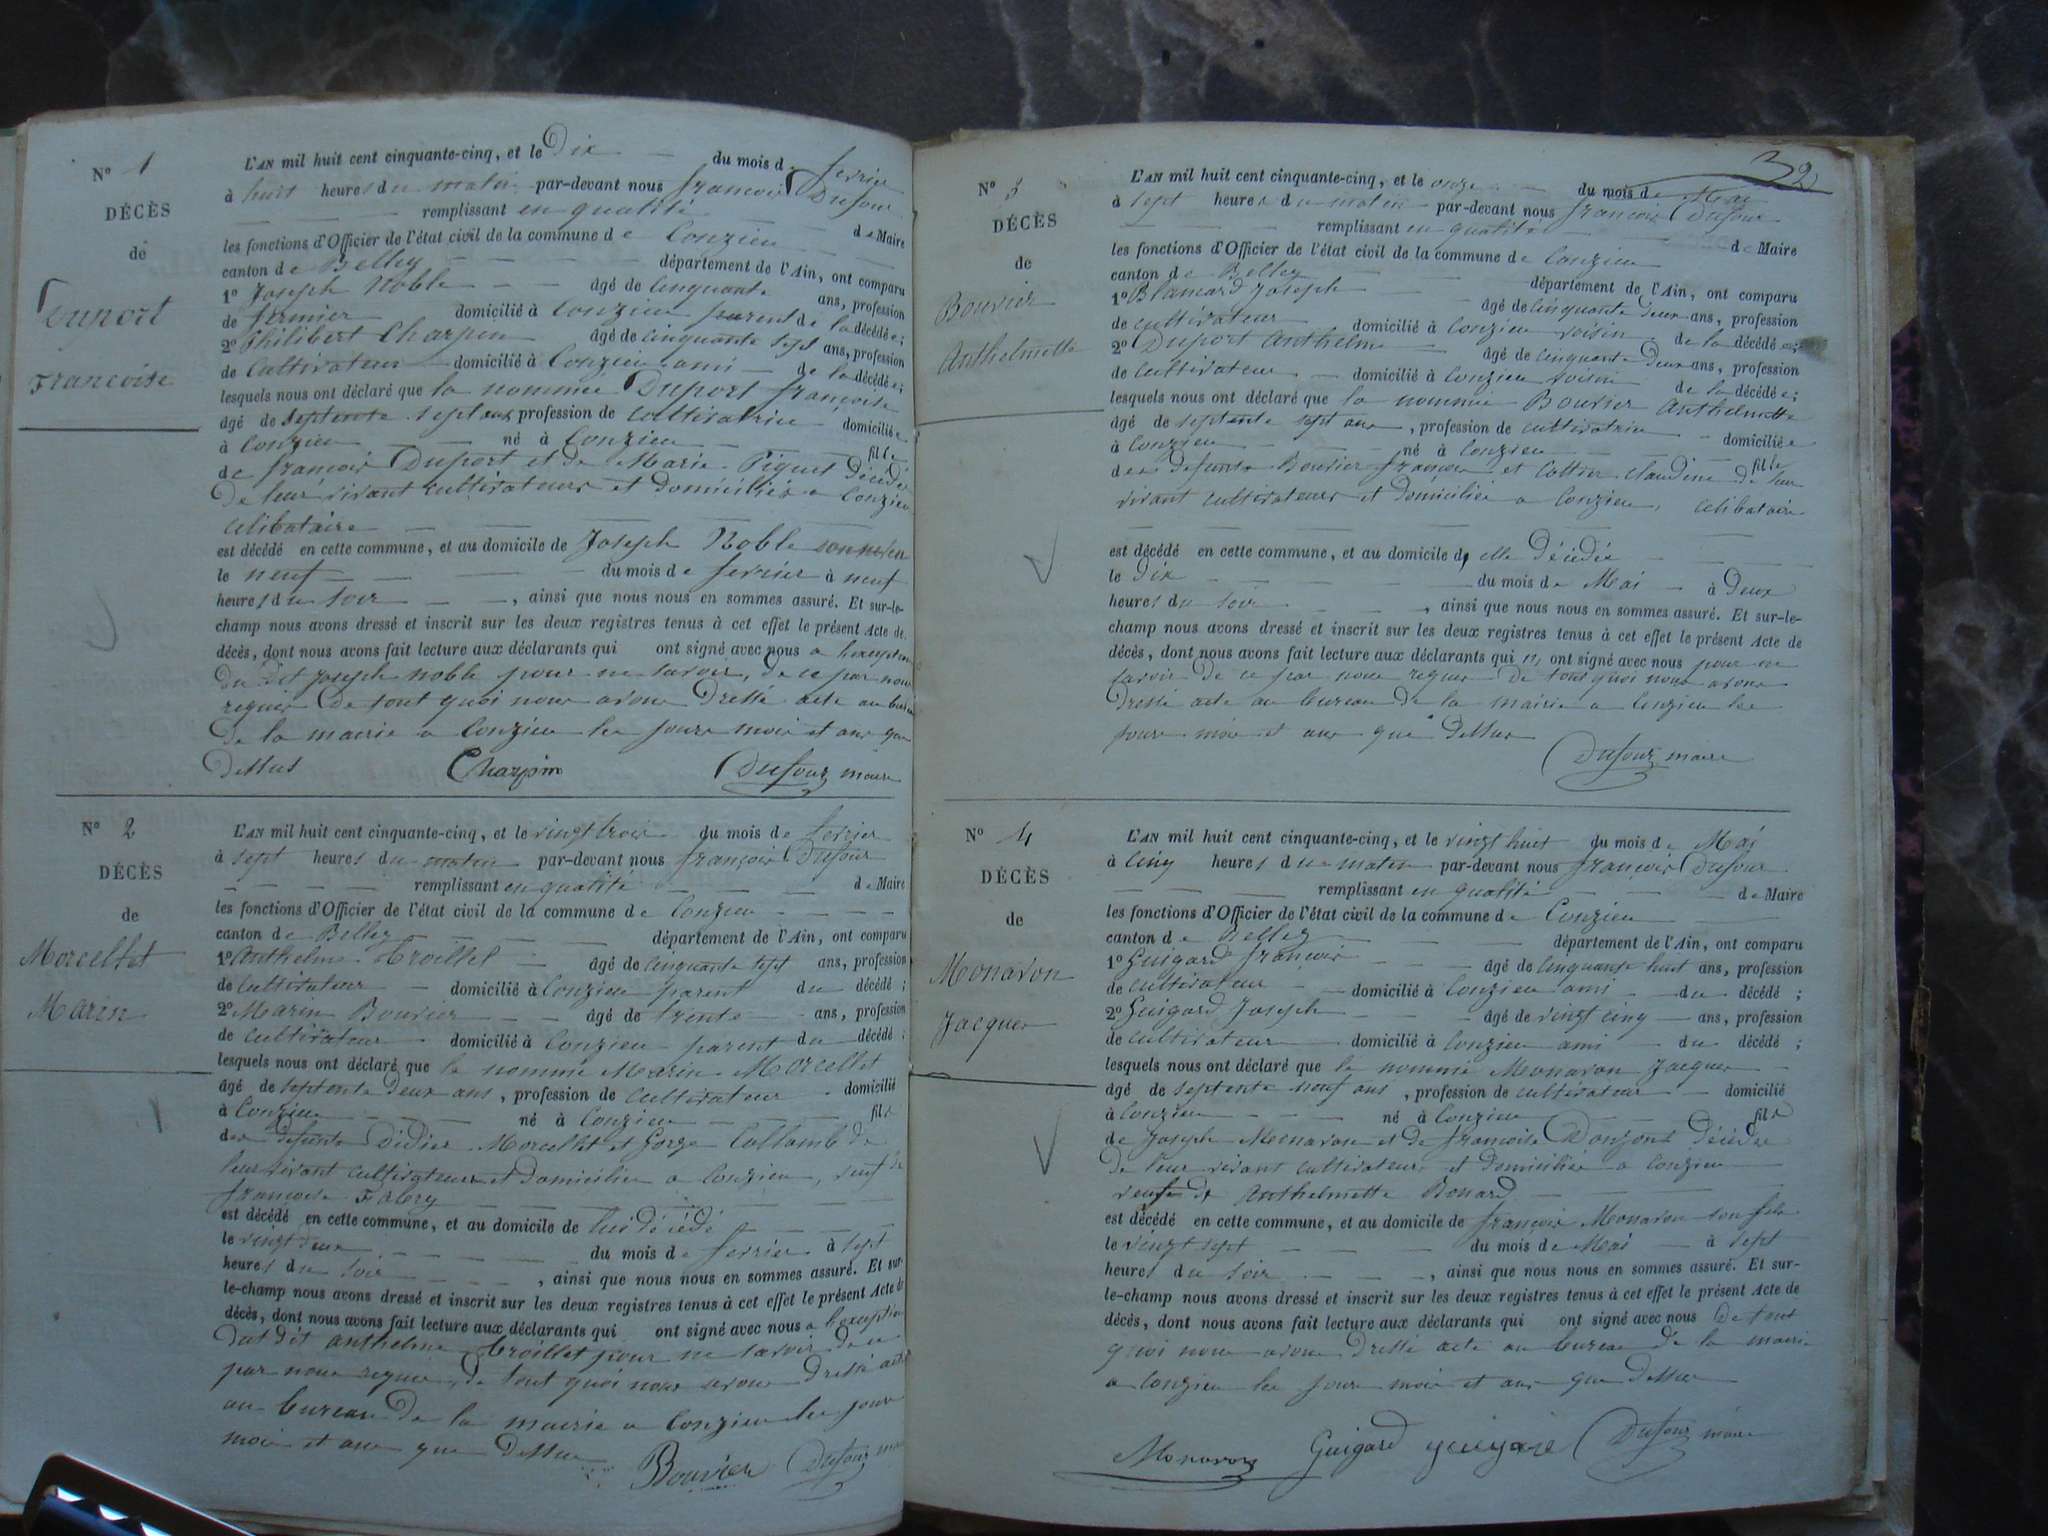 N° 1
DÉCÈS
de
Duport
Françoise
L'AN mil huit cent cinquante-cinq, et le Dix du mois de fevrier
à huit heures du matin par-devant nous françois Dufour
remplissant en qualité de Maire
les fonctions d'Officier de l'état civil de la commune de Conzieu
canton de Belley département de l'Ain, ont comparu
1° Joseph Noble âgé de cinquante ans, profession
de fermier domicilié à Conzieu parent de la décédée;
2° Philibert Charpin âgé de cinquante sept ans, profession
de cultivateur domicilié à Conzieu ami de la décédée;
lesquels nous ont déclaré que la nommée Duport françoise
âgé de septente sept ans, profession de cultivatrice domiciliée
à Conzieu né à Conzieu fille
de françois Duport et de Marie Piquet décédés
De leur vivant cultivateurs et domiciliés a Conzieu
celibataire
est décédé en cette commune, et au domicile de Joseph Noble son neveu
le neuf du mois de fevrier à neuf
heures du soir, ainsi que nous nous en sommes assuré. Et sur-le-
champ nous avons dressé et inscrit sur les deux registres tenus à cet effet le présent Acte de
décès, dont nous avons fait lecture aux déclarants qui ont signé avec nous a l'exception
Du Dit joseph noble pour ne savoir, de ce par nous
requis De tout quoi nous avons Dressé acte au bureau
De la mairie a Conzieu les jours mois et ans que
Dessus Charpin Dufour maire
N° 2
DÉCÈS
de
Morcellet
Marin
L'AN mil huit cent cinquante-cinq, et le vingt trois du mois de fevrier
à sept heures du matin par-devant nous françois Dufour
remplissant en qualité de Maire
les fonctions d'Officier de l'état civil de la commune de Conzieu
canton de Belley département de l'Ain, ont comparu
1° Anthelme Troillet âgé de cinquante sept ans, profession
de cultivateur domicilié à Conzieu parent du décédé;
2° Marin Bouvier âgé de trente ans, profession
de cultivateur domicilié à Conzieu parent du décédé;
lesquels nous ont déclaré que le nommé Marin Morcellet
âgé de septente Deux ans, profession de cultivateur domicilié
à Conzieu né à Conzieu fils
des defunts Didier Morcellet et Collomb de
leur vivant cultivateurs et Domiciliés a Conzieu, veuf de
françoise Fabery
est décédé en cette commune, et au domicile de lui décédé
le vingt deux du mois de fevrier à sept
heures du soir, ainsi que nous nous en sommes assuré. Et sur-
le-champ nous avons dressé et inscrit sur les deux registres tenus à cet effet le présent Acte de
décès, dont nous avons fait lecture aux déclarants qui ont signé avec nous a l'exception
Dudit anthelme Troillet pour ne savoir de ce
par nous requis, de tout quoi nous avons Dressé acte
au bureau De la mairie a Conzieu les jours
mois et ans que Dessus Bouvier Dufour
32
N° 3
DÉCÈS
de
Bouvier
Anthelmette
L'AN mil huit cent cinquante-cinq, et le onze du mois de Mai
à sept heures du matin par-devant nous françois Dufour
remplissant en qualité de Maire
les fonctions d'Officier de l'état civil de la commune de Conzieu
canton de Belley département de l'Ain, ont comparu
1° Blancard Joseph âgé de cinquante deux ans, profession
de cultivateur domicilié à Conzieu voisin de la décédée;
2° Duport Anthelme âgé de cinquante Deux ans, profession
de cultivateur domicilié à Conzieu voisin de la décédée;
lesquels nous ont déclaré que la nommée Bouvier Anthelmette
âgé de septente sept ans, profession de cultivatrice domiciliée
à Conzieu né à Conzieu fille
des defunts Bouvier françois et Cottin Claudine de leur
vivant cultivateurs et domiciliés a Conzieu, celibataire
est décédé en cette commune, et au domicile d'elle Décédée
le Dix du mois de Mai à Deux
heures du soir, ainsi que nous nous en sommes assuré. Et sur-le-
champ nous avons dressé et inscrit sur les deux registres tenus à cet effet le présent Acte de
décès, dont nous avons fait lecture aux déclarants qui n'ont signé avec nous pour ne
savoir de ce par nous requis De tout quoi nous avons
Dressé acte au bureau De la mairie a Conzieu les
jours mois et ans que Dessus
Dufour maire
N° 4
DÉCÈS
de
Monavon
Jacques
L'AN mil huit cent cinquante-cinq, et le vingt huit du mois de Mai
à cinq heures du matin par-devant nous françois Dufour
remplissant en qualité de Maire
les fonctions d'Officier de l'état civil de la commune de Conzieu
canton de Belley département de l'Ain, ont comparu
1° Guigard françois âgé de cinquante huit ans, profession
de cultivateur domicilié à Conzieu ami du décédé;
2° Guigard Joseph âgé de vingt cinq ans, profession
de cultivateur domicilié à Conzieu ami du décédé;
lesquels nous ont déclaré que le nommé Monavon Jacques
âgé de septente neuf ans, profession de cultivateur domicilié
à Conzieu né à Conzieu fils
de Joseph Monavon et de françoise Décédés
De leur vivant cultivateurs et Domiciliés a Conzieu
veuf d' Anthelmette Bonard
est décédé en cette commune, et au domicile de françois Monavon son fils
le vingt sept du mois de Mai à sept
heures du soir, ainsi que nous nous en sommes assuré. Et sur-
le-champ nous avons dressé et inscrit sur les deux registres tenus à cet effet le présent Acte de
décès, dont nous avons fait lecture aux déclarants qui ont signé avec nous De tout
quoi nous avons Dressé acte au bureau de la mairie
a Conzieu les jours mois et ans que Dessus
Monavon Guigard Dufour maire